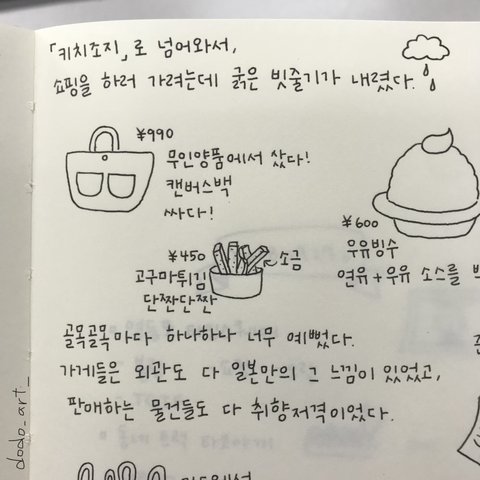 「키치조지」로 넘어와서,
쇼핑을 하러 가려는데 굵은 빗줄기가 내렸다.
¥990
무인양품에서 샀다!
캔버스백
싸다!
¥600
우유빙수
연유+우유 소스를
¥450
고구마튀김
단짠단짠
소금
골목골목마다 하나하나 너무 예뻤다.
가게들은 외관도 다 일본만의 그 느낌이 있었고,
판매하는 물건들도 다 취향저격이었다.
dodo_art_